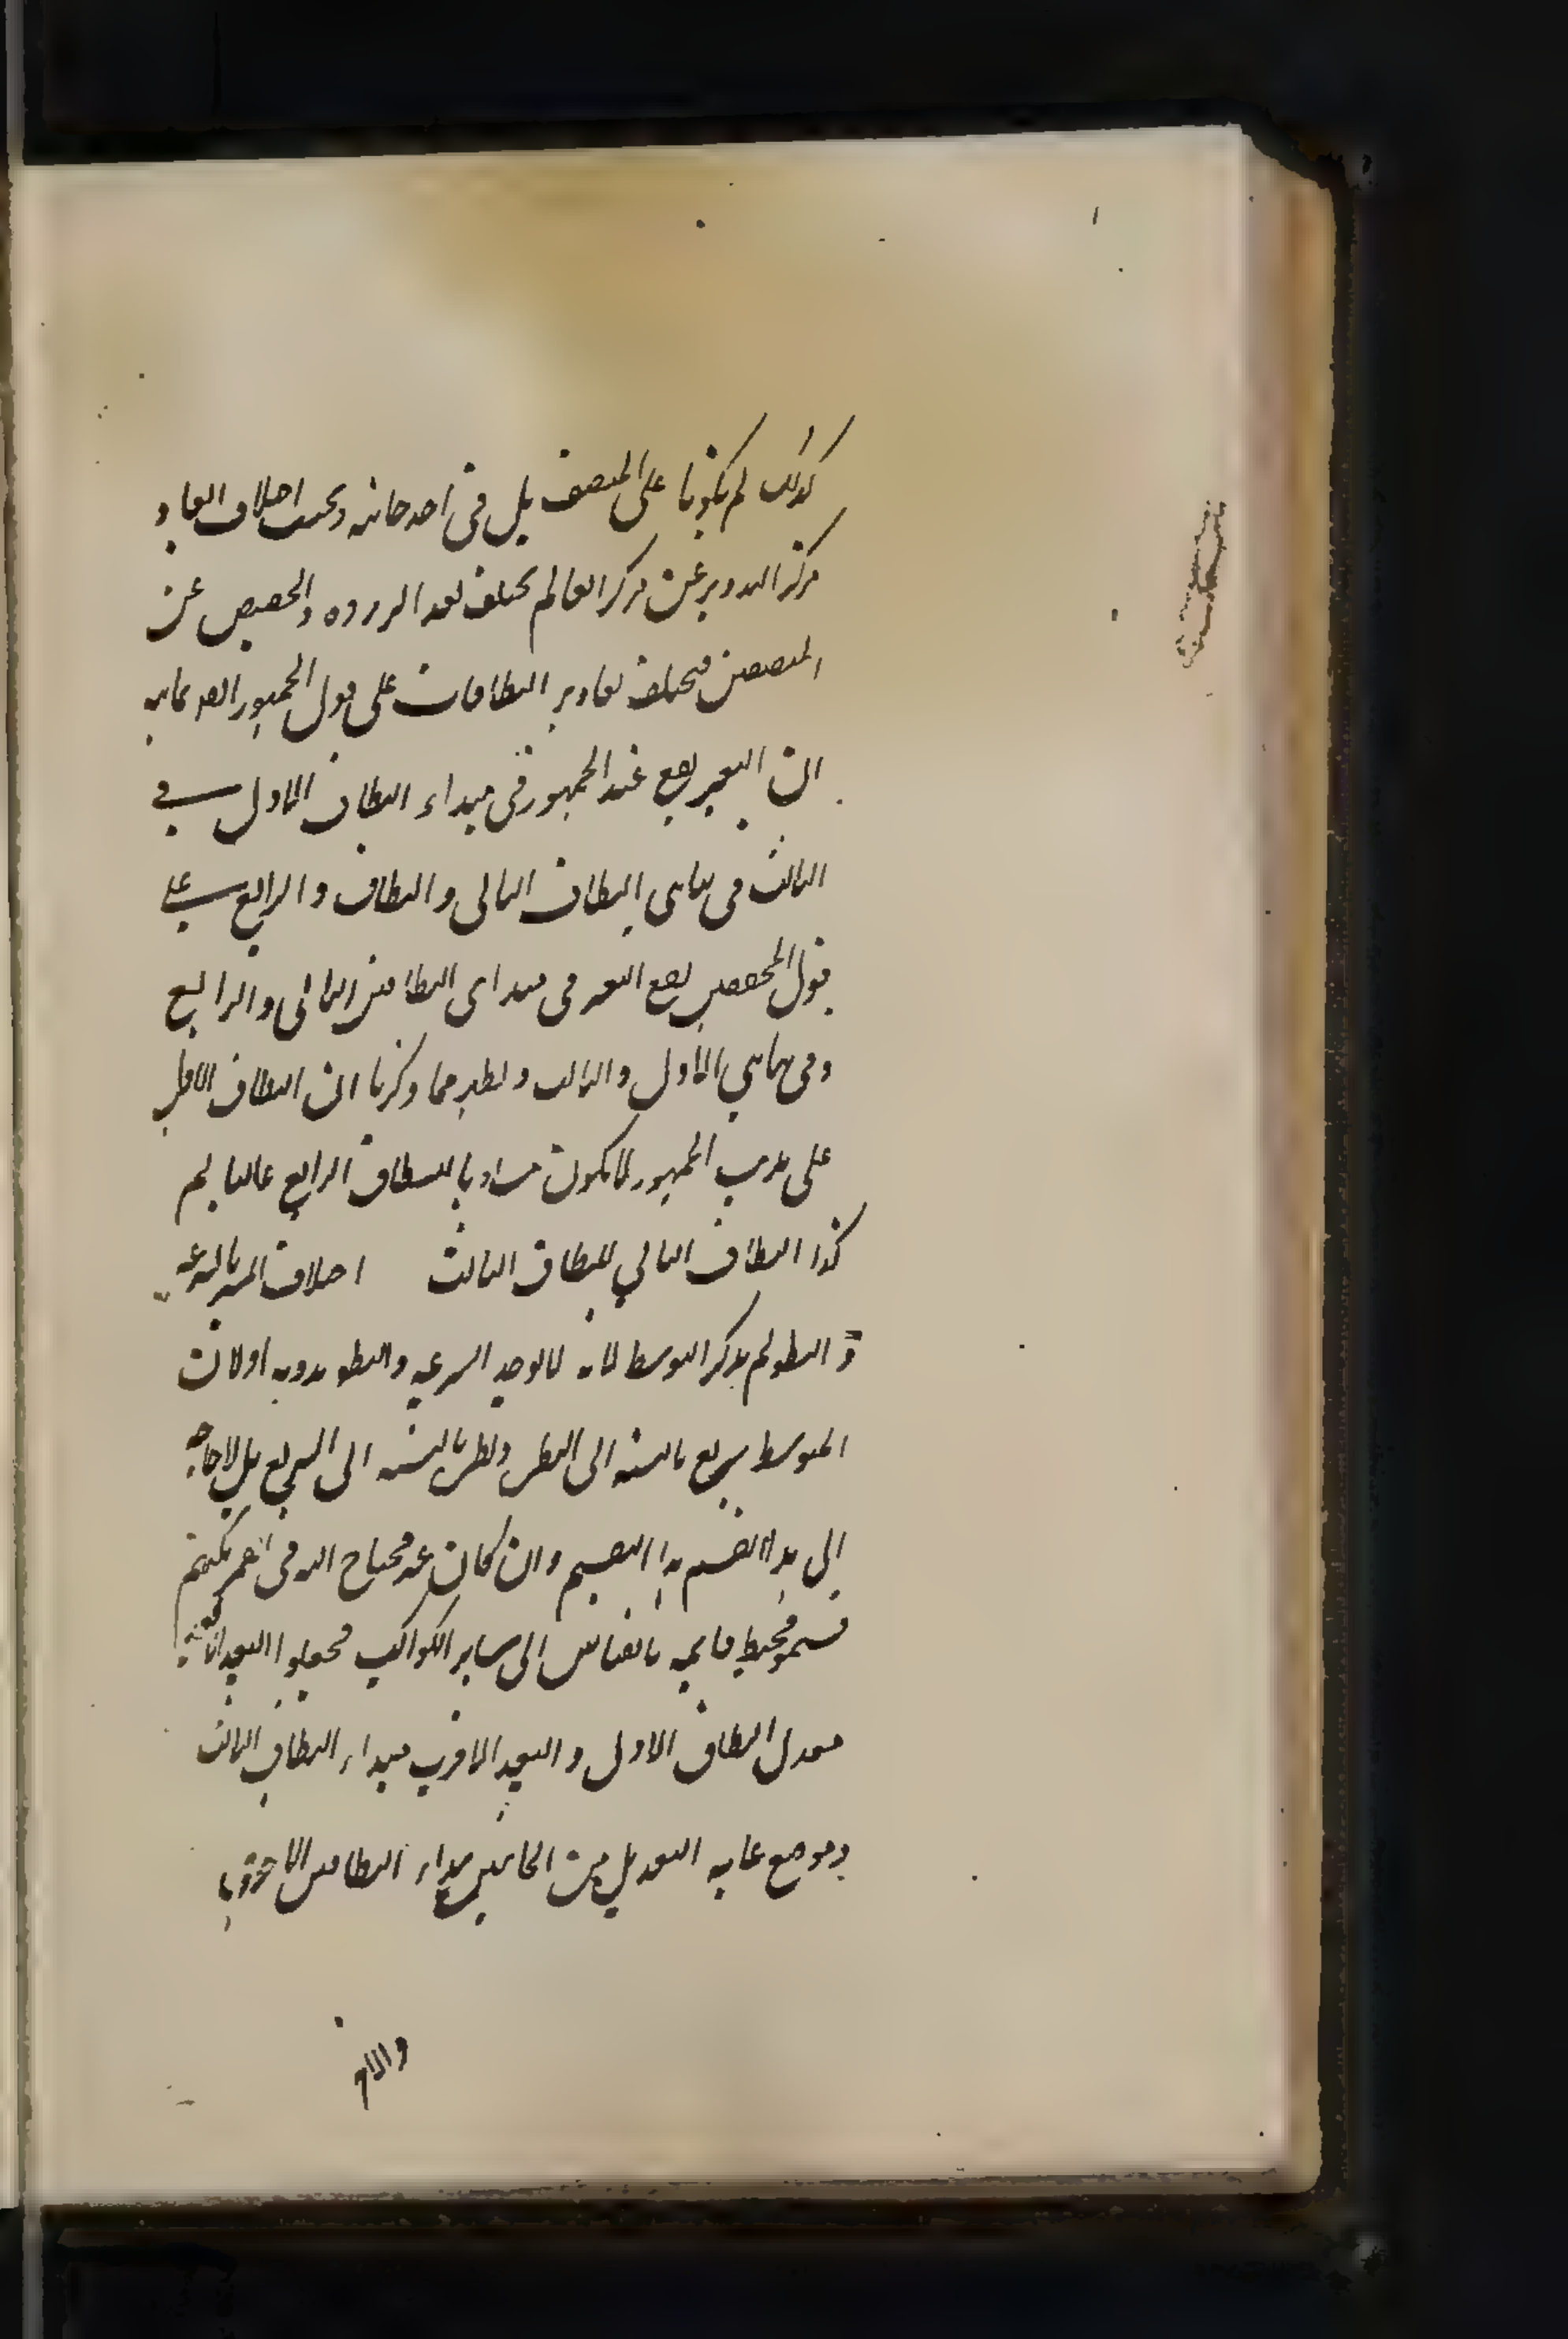 كذلك لم يكونا على المنصف بل في احد جانبيه وبحسب اختلاف ابعاد
مركز التدوير عن مركز العالم يختلف بعد الذروة والحضيض عن
المنصفين فيختلف مقادير النطاقات على قول الجمهور
ان البعد يقع عند الجمهور في مبداء النطاق الاول في
الثالث في نهايتي النطاق الثاني والنطاق والرابع على
قول المحققين يقع البعد في مبدأي النطاقين الثاني والرابع
وفي نهايتي الاول والثالث ويظهر مما ذكرنا ان النطاق الاول
على مذهب الجمهور لا يكون مساويا للنطاق الرابع غالبا ثم
كذا النطاق الثاني للنطاق الثالث اختلاف المسير بالسرعة
و البطو لم يذكر التوسط لانه لا يوجد السرعة والبطو بدونه او لان
المتوسط سريع بالنسبة الى البطي وبطي بالنسبة الى السريع بل لا حاجة
الى هذا القسم هذا التقسيم وان كان محتاج اليه في
محيط بالقياس الى ساير الكواكب فجعلوا البعد
النطاق الاول و البعد الاقرب مبداء النطاق الثالث
وموضع غاية التعديل من الجانبين مبداء النطاقين الاخرين